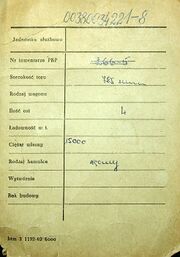 00380034221-8
Jednostka służbowa
Nr towarowe PKP
Szerokość toru 785 mm
Rodzaj wagonu
Ilość osi 4
Ładowność w t.
Ciężar własny 15000
Rodzaj hamulca ręczny
Wytwórnia
Rok budowy